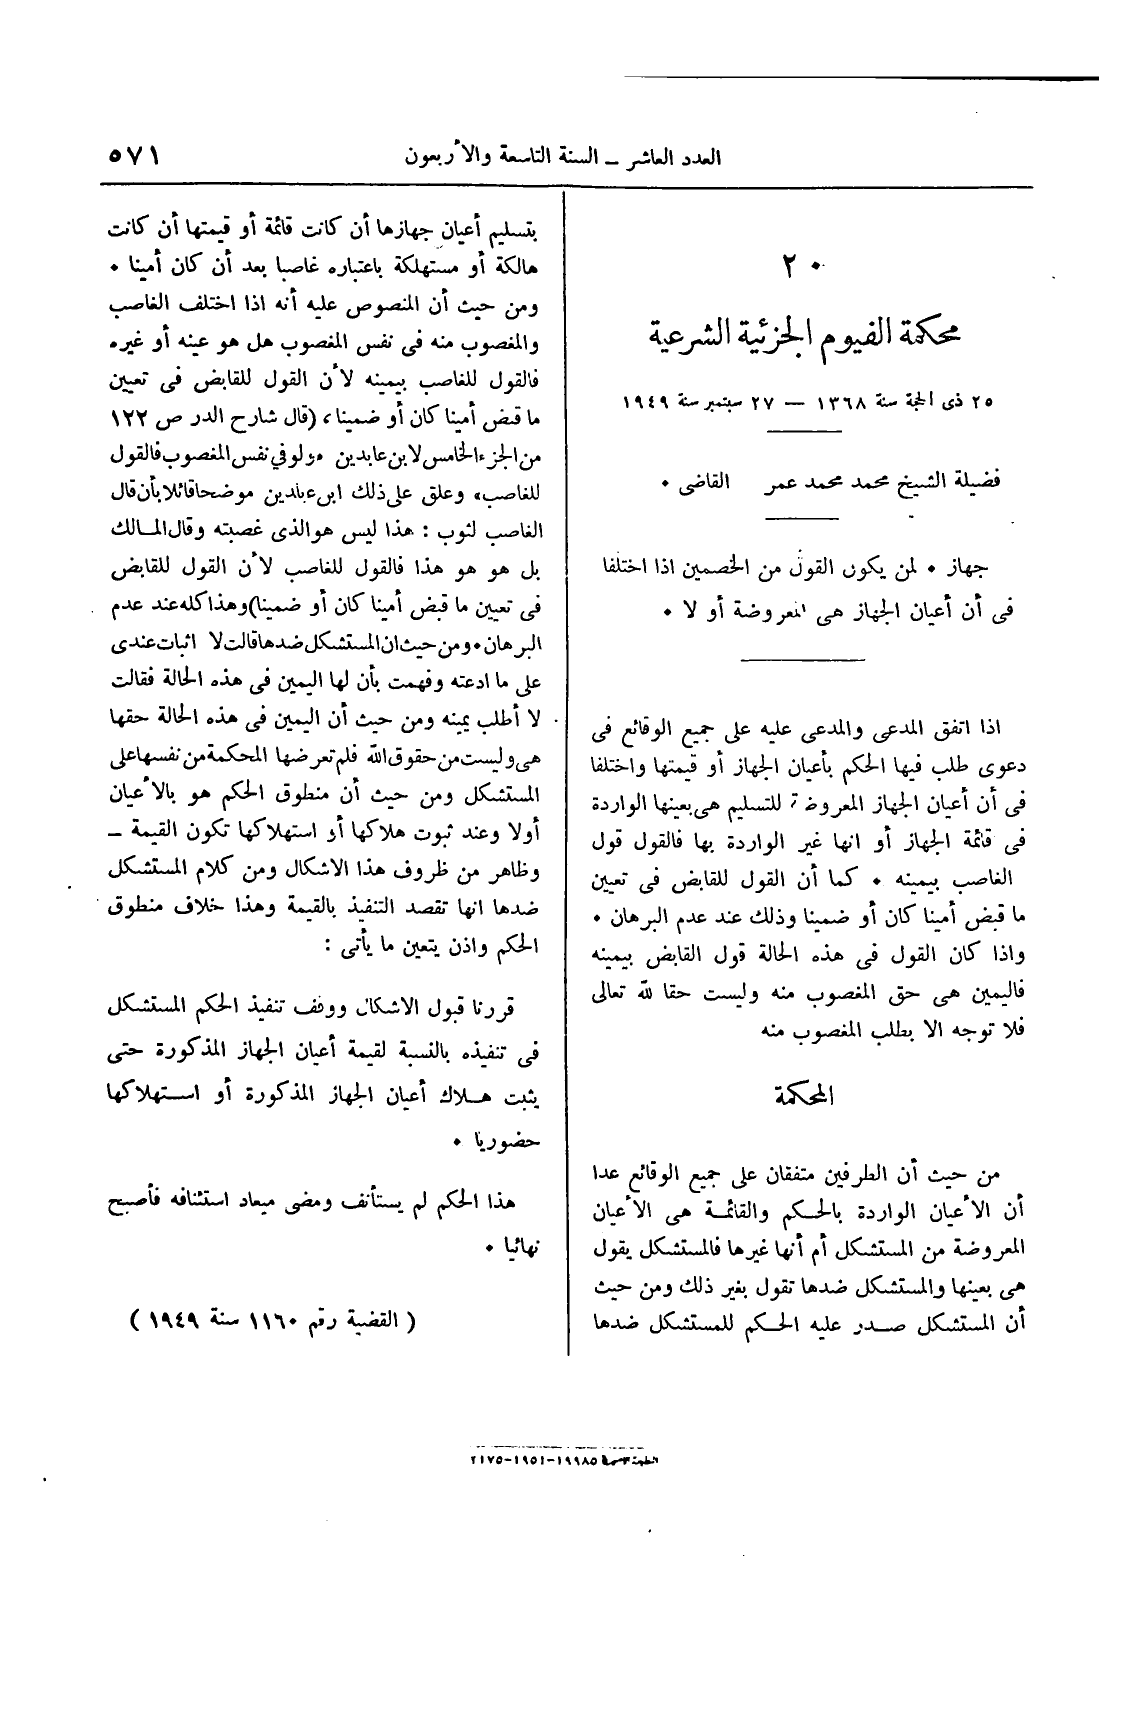 العدد العاشر ــ السنة التاسعة والأربعون
٥٧١
٢٠
محكمة الفيوم الجزئية الشرعية
٢٥ ذى الحجة سنة ١٣٦٨ — ٢٧ سبتمبر سنة ١٩٤٩
فضيلة الشيخ محمد محمد عمر القاضى ٠
جهاز ٠ لمن يكون القول من الخصمين اذا اختلفا
فى أن أعيان الجهاز هى المعروضة أو لا ٠
اذا اتفق المدعى والمدعى عليه على جميع الوقائع فى
دعوى طلب فيها الحكم بأعيان الجهاز أو قيمتها واختلفا
فى أن أعيان الجهاز المعروضة للتسليم هى بعينها الواردة
فى قائمة الجهاز أو انها غير الواردة بها فالقول قول
الغاصب بيمينه ٠ كما أن القول للقابض فى تعيين
ما قبض أمينا كان أو ضمينا وذلك عند عدم البرهان ٠
واذا كان القول فى هذه الحالة قول القابض بيمينه
فاليمين هى حق المغصوب منه وليست حقا لله تعالى
فلا توجه الا بطلب المغصوب منه
المحكمة
من حيث أن الطرفين متفقان على جميع الوقائع عدا
أن الأعيان الواردة بالحكم والقائمة هى الأعيان
المعروضة من المستشكل أم أنها غيرها فالمستشكل يقول
هى بعينها والمستشكل ضدها تقول بغير ذلك ومن حيث
أن المستشكل صدر عليه الحكم للمستشكل ضدها
بتسليم أعيان جهازها أن كانت قائمة أو قيمتها أن كانت
هالكة أو مستهلكة باعتباره غاصبا بعد أن كان أمينا ٠
ومن حيث أن المنصوص عليه أنه اذا اختلف الغاصب
والمغصوب منه فى نفس المغصوب هل هو عينه أو غيره
فالقول للغاصب بيمينه لأن القول للقابض فى تعيين
ما قبض أمينا كان أو ضمينا، (قال شارح الدر ص ١٢٢
من الجزء الخامس لابن عابدين «ولو في نفس المغصوب فالقول
للغاصب» وعلق على ذلك ابن عابدين موضحا قائلا بأن قال
الغاصب لثوب : هذا ليس هو الذى غصبته وقال المالك
بل هو هو هذا فالقول للغاصب لأن القول للقابض
فى تعيين ما قبض أمينا كان أو ضمينا) وهذا كله عند عدم
البرهان ٠ ومن حيث ان المستشكل ضدها قالت لا اثبات عندى
على ما ادعته وفهمت بأن لها اليمين فى هذه الحالة فقالت
لا أطلب يمينه ومن حيث أن اليمين فى هذه الحالة حقها
هى وليست من حقوق الله فلم تعرضها المحكمة من نفسها على
المستشكل ومن حيث أن منطوق الحكم هو بالأعيان
أولا وعند ثبوت هلاكها أو استهلاكها تكون القيمة ــ
وظاهر من ظروف هذا الاشكال ومن كلام المستشكل
ضدها انها تقصد التنفيذ بالقيمة وهذا خلاف منطوق
الحكم واذن يتعين ما يأتى :
قررنا قبول الاشكال ووقف تنفيذ الحكم المستشكل
فى تنفيذه بالنسبة لقيمة أعيان الجهاز المذكورة حتى
يثبت هلاك أعيان الجهاز المذكورة أو استهلاكها
حضوريا ٠
هذا الحكم لم يستأنف ومضى ميعاد استئنافه فأصبح
نهائيا ٠
( القضية رقم ١١٦٠ سنة ١٩٤٩ )
١٩٩٨٥-١٩٥١-٢١٧٥